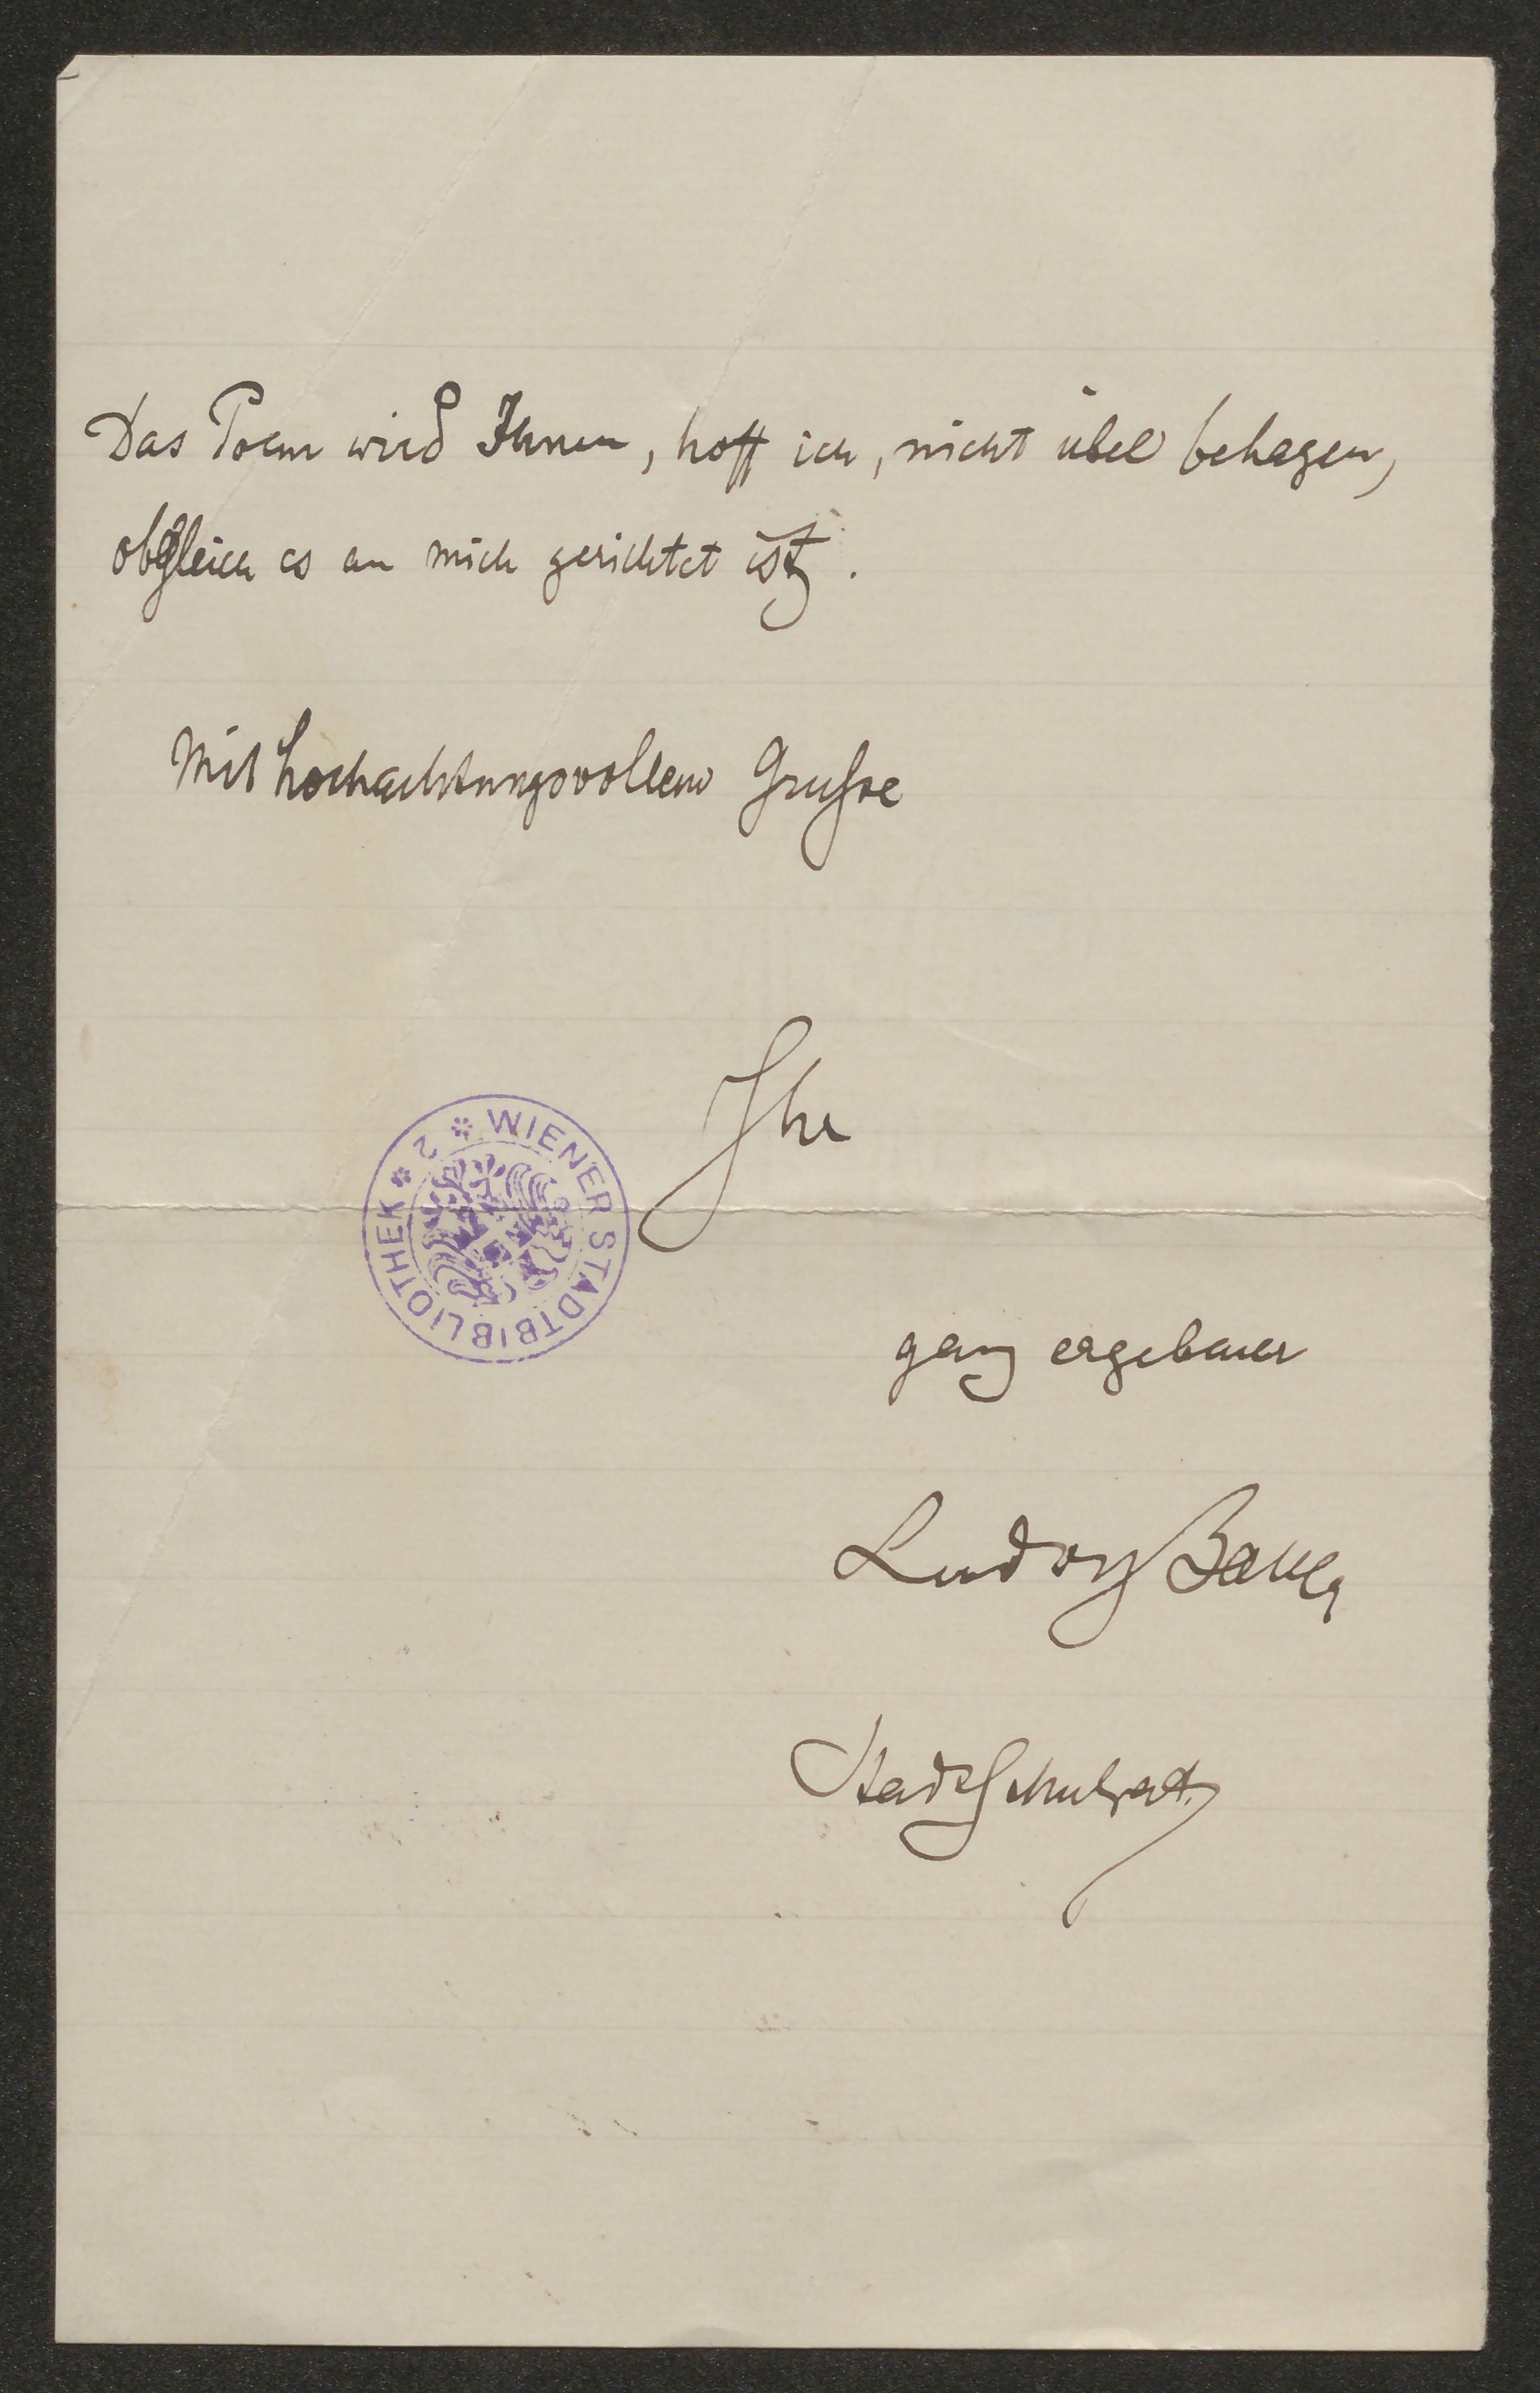 Das Poem wird Ihnen, hoff ich, nicht übel behagen,
obgleich es an mich gerichtet ist.
Mit hochachtungsvollem Gruße
Ihr
WIENER STADTBIBLIOTHEK * 2 *
ganz ergebener
Ludwig
Stadtschulrat.